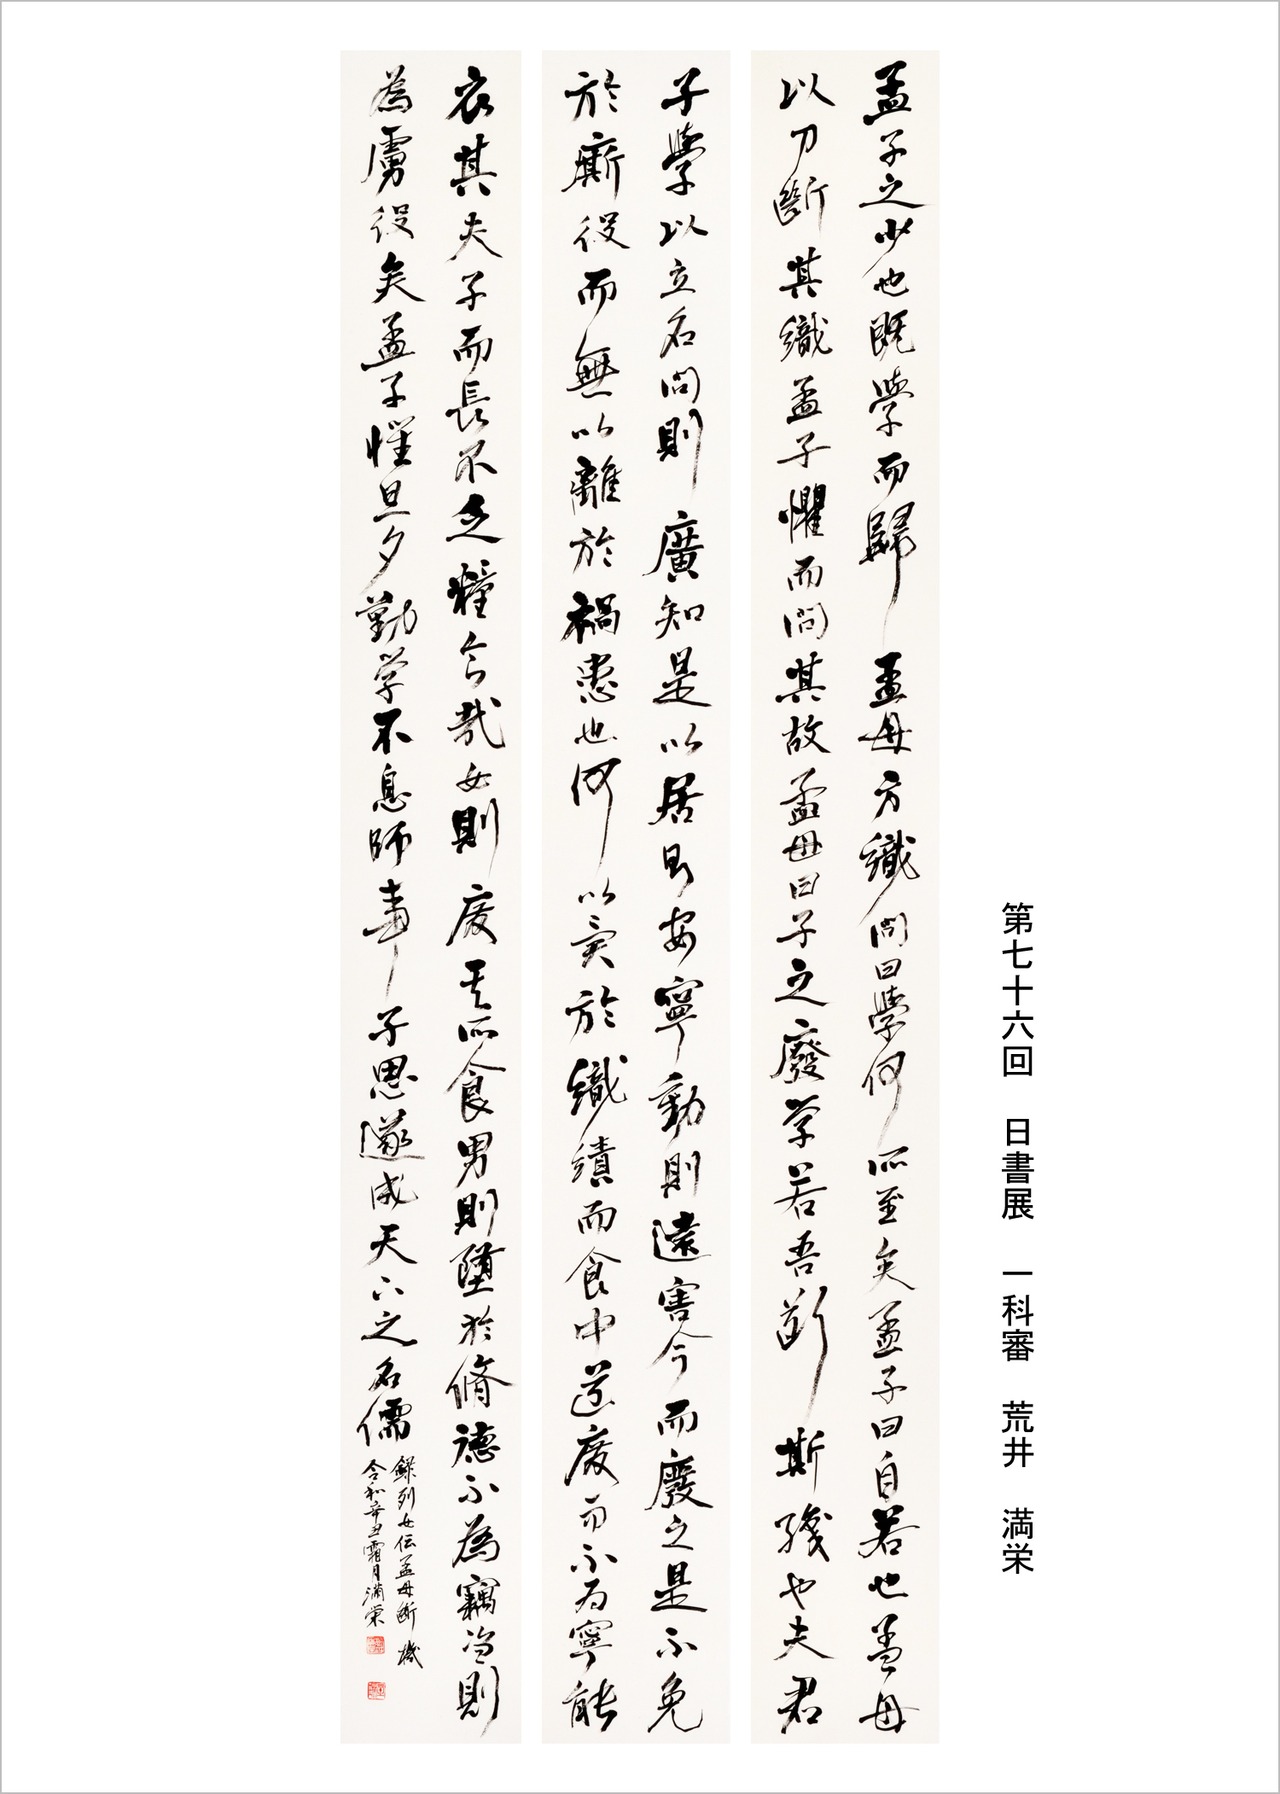 孟子之少也既學而歸孟母方織問曰學何所至矣孟子曰自若也孟母
以刀斷其織孟子懼而問其故孟母曰子之廢学若吾斷斯織也夫君
子學以立名問則廣知是以居則安寧動則遠害今而廢之是不免
於廝役而無以離於禍患也何以異於織績而食中道廃而不為寧能
衣其夫子而長不乏糧食哉女則廃其所食男則墮於脩徳不為竊盗則
為虜役矣孟子懼旦夕勤学不息師事子思遂成天下之名儒
錄列女伝孟母断機
令和辛丑霜月満栄
第七十六回　日書展　一科審　荒井　満栄